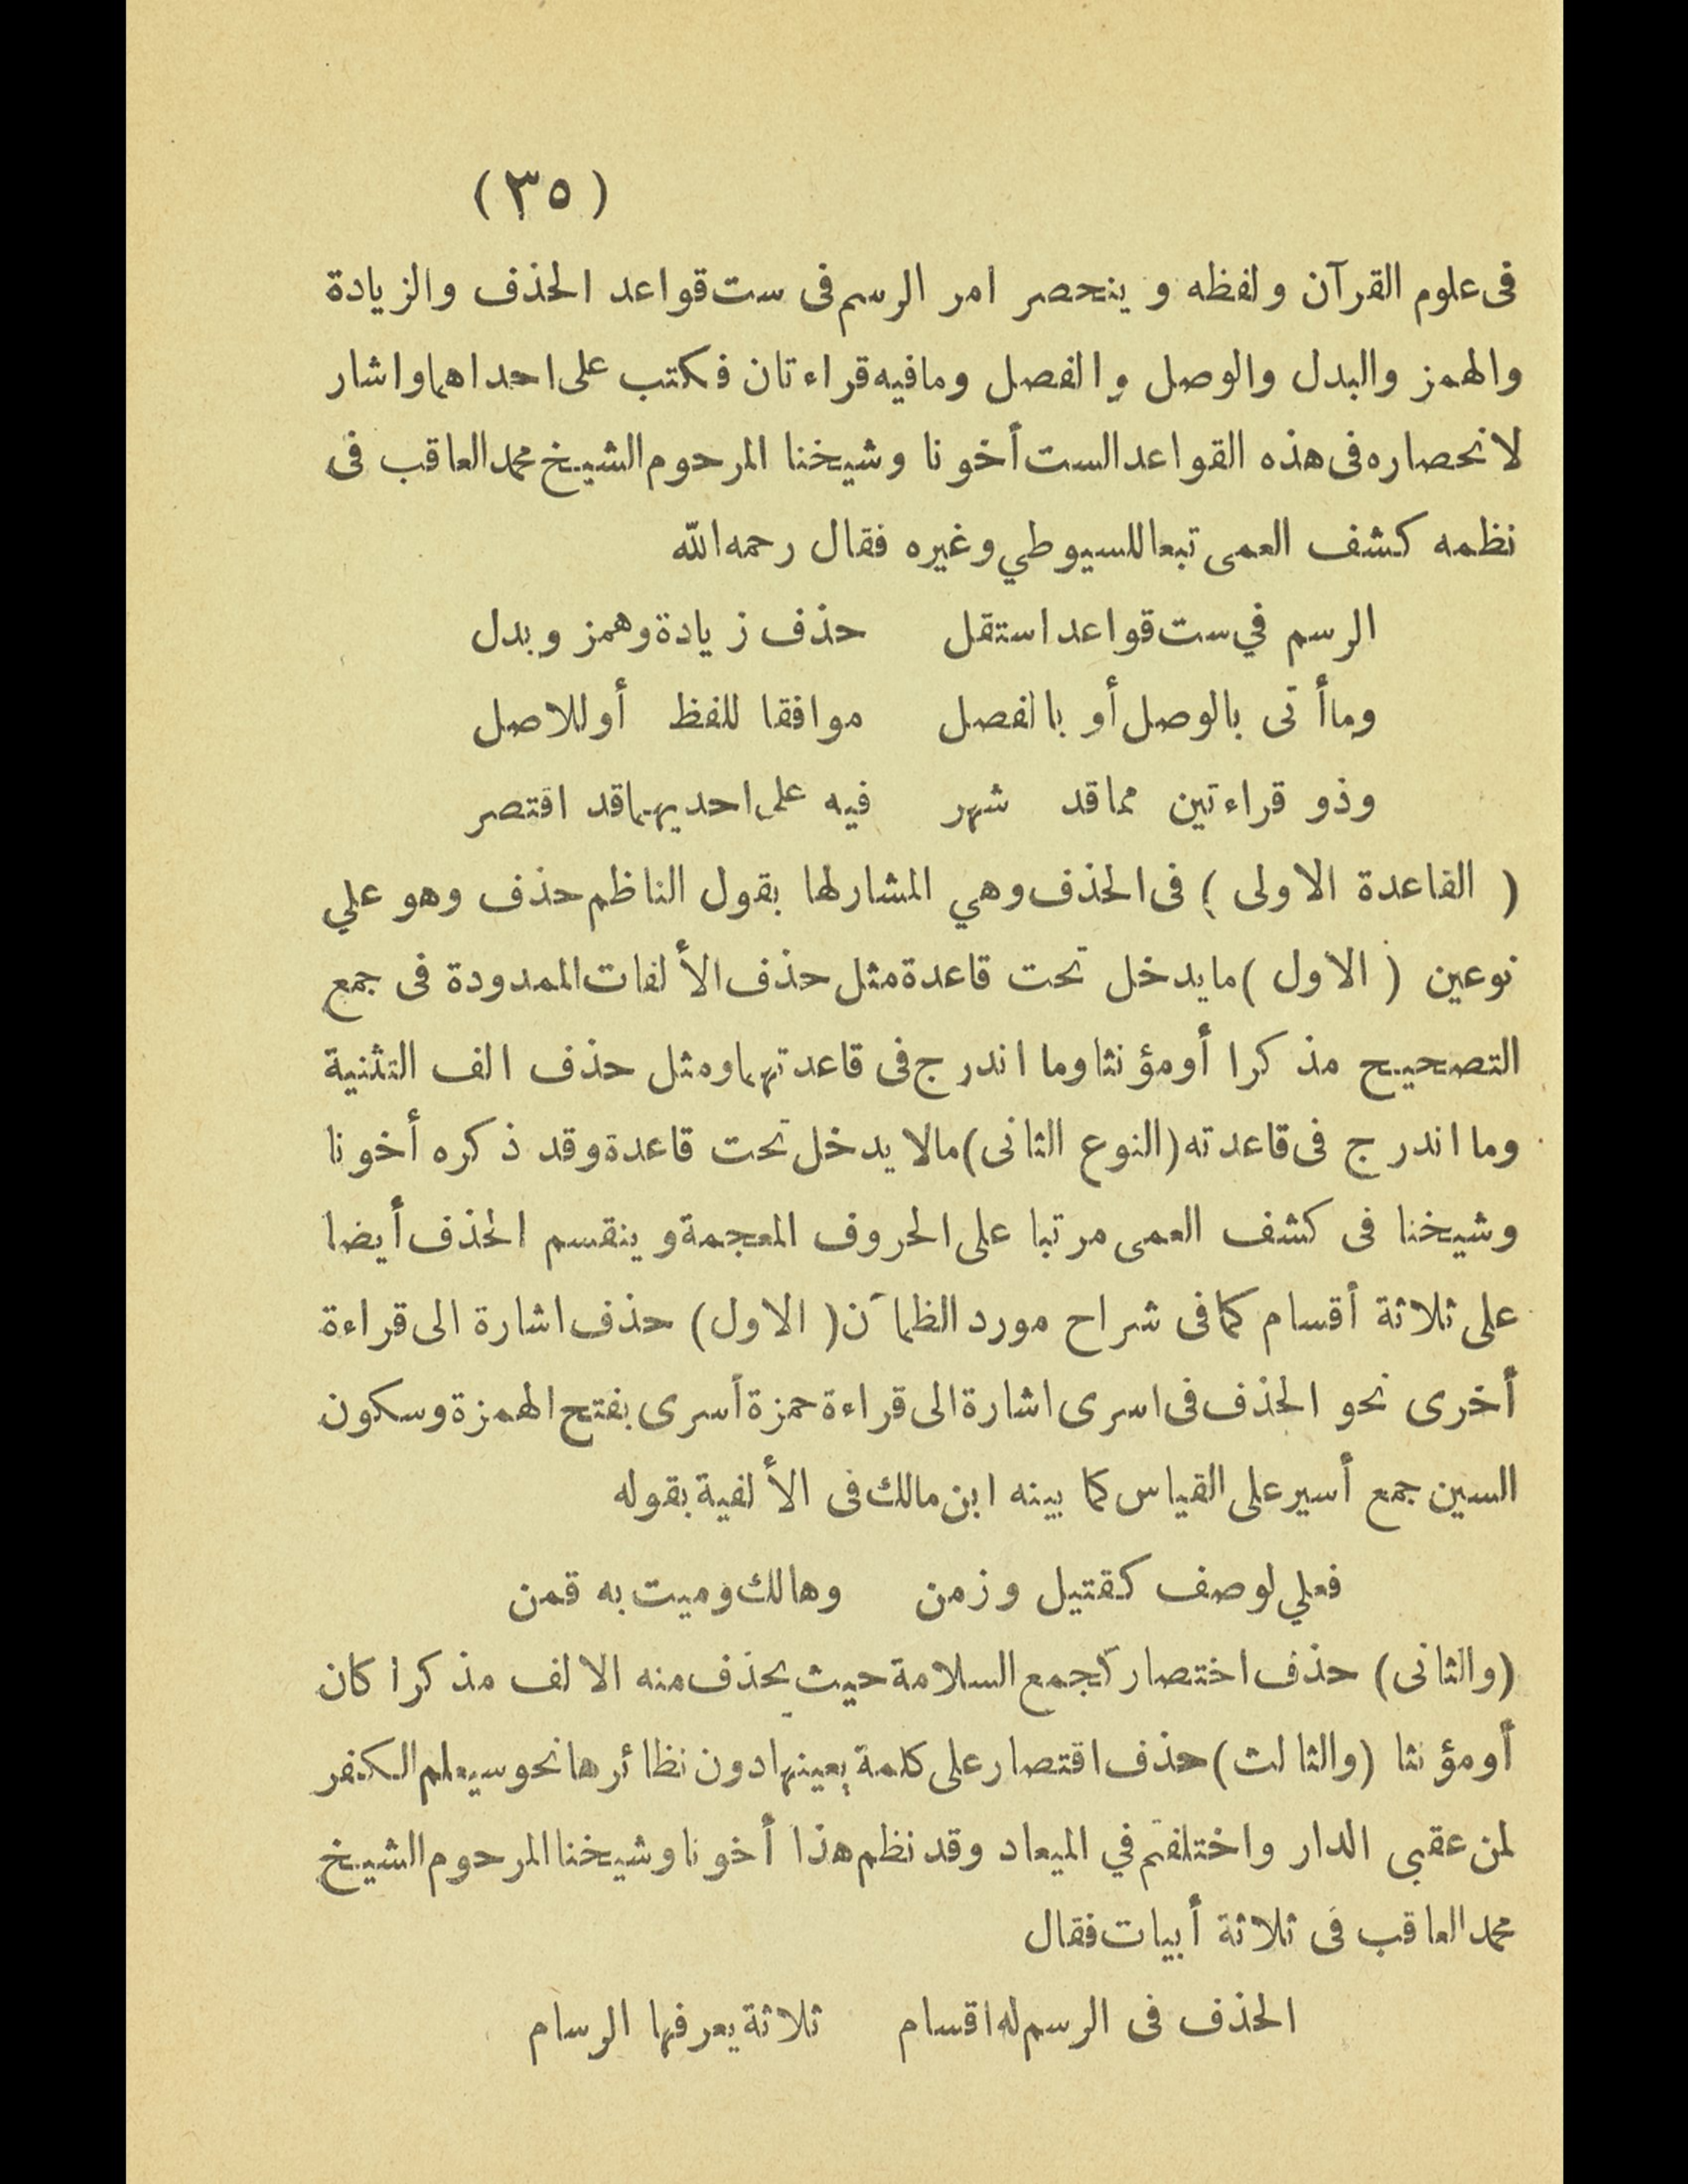 (٣٥)
فى علوم القرآن ولفظه و ينحصر امر الرسم فى ست قواعد الحذف والزيادة
والهمز والبدل والوصل والفصل ومافيه قراءتان فكتب على احداهما واشار
لانحصاره فى هذه القواعد الست أخونا وشيخنا المرحوم الشيخ محمد العاقب فى
نظمه كشف العمى تبعا للسيوطي وغيره فقال رحمه الله
الرسم في ست قواعد استقل حذف زيادة وهمز وبدل
وما أتى بالوصل أو بالفصل موافقا للفظ أو للاصل
وذو قراءتين مما قد شهر فيه على احديهما قد اقتصر
( القاعدة الاولى ) فى الحذف وهي المشار لها بقول الناظم حذف وهو علي
نوعين ( الاول ) ما يدخل تحت قاعدة مثل حذف الألفات الممدودة فى جمع
التصحيح مذكرا أو مؤنثا وما اندرج فى قاعدتهما ومثل حذف الف التثنية
وما اندرج فى قاعدته (النوع الثانى) مالا يدخل تحت قاعدة وقد ذكره أخونا
وشيخنا فى كشف العمى مرتبا على الحروف المعجمة و ينقسم الحذف أيضا
على ثلاثة أقسام كما فى شراح مورد الظمآن ( الاول ) حذف اشارة الى قراءة
أخرى نحو الحذف فى اسرى اشارة الى قراءة حمزة أسرى بفتح الهمزة وسكون
السين جمع أسير على القياس كما بينه ابن مالك فى الألفية بقوله
فعلي لوصف كقتيل وزمن وهالك وميت به قمن
(والثانى) حذف اختصار كجمع السلامة حيث يحذف منه الالف مذكرا كان
أو مؤنثا (والثالث) حذف اقتصار على كلمة بعينها دون نظائرها نحو سيعلم الكفر
لمن عقبى الدار واختلفتم في الميعاد وقد نظم هذا أخونا وشيخنا المرحوم الشيخ
محمد العاقب فى ثلاثة أبيات فقال
الحذف فى الرسم له اقسام ثلاثة يعرفها الرسام